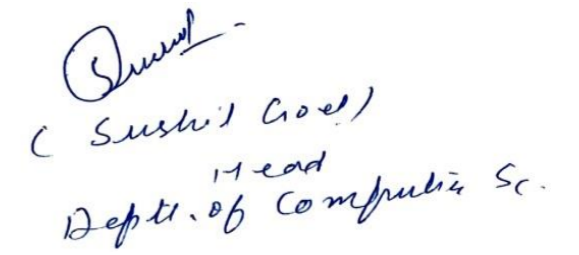 (Sushil Goel)
Head
Deptt. of Computer Sc.